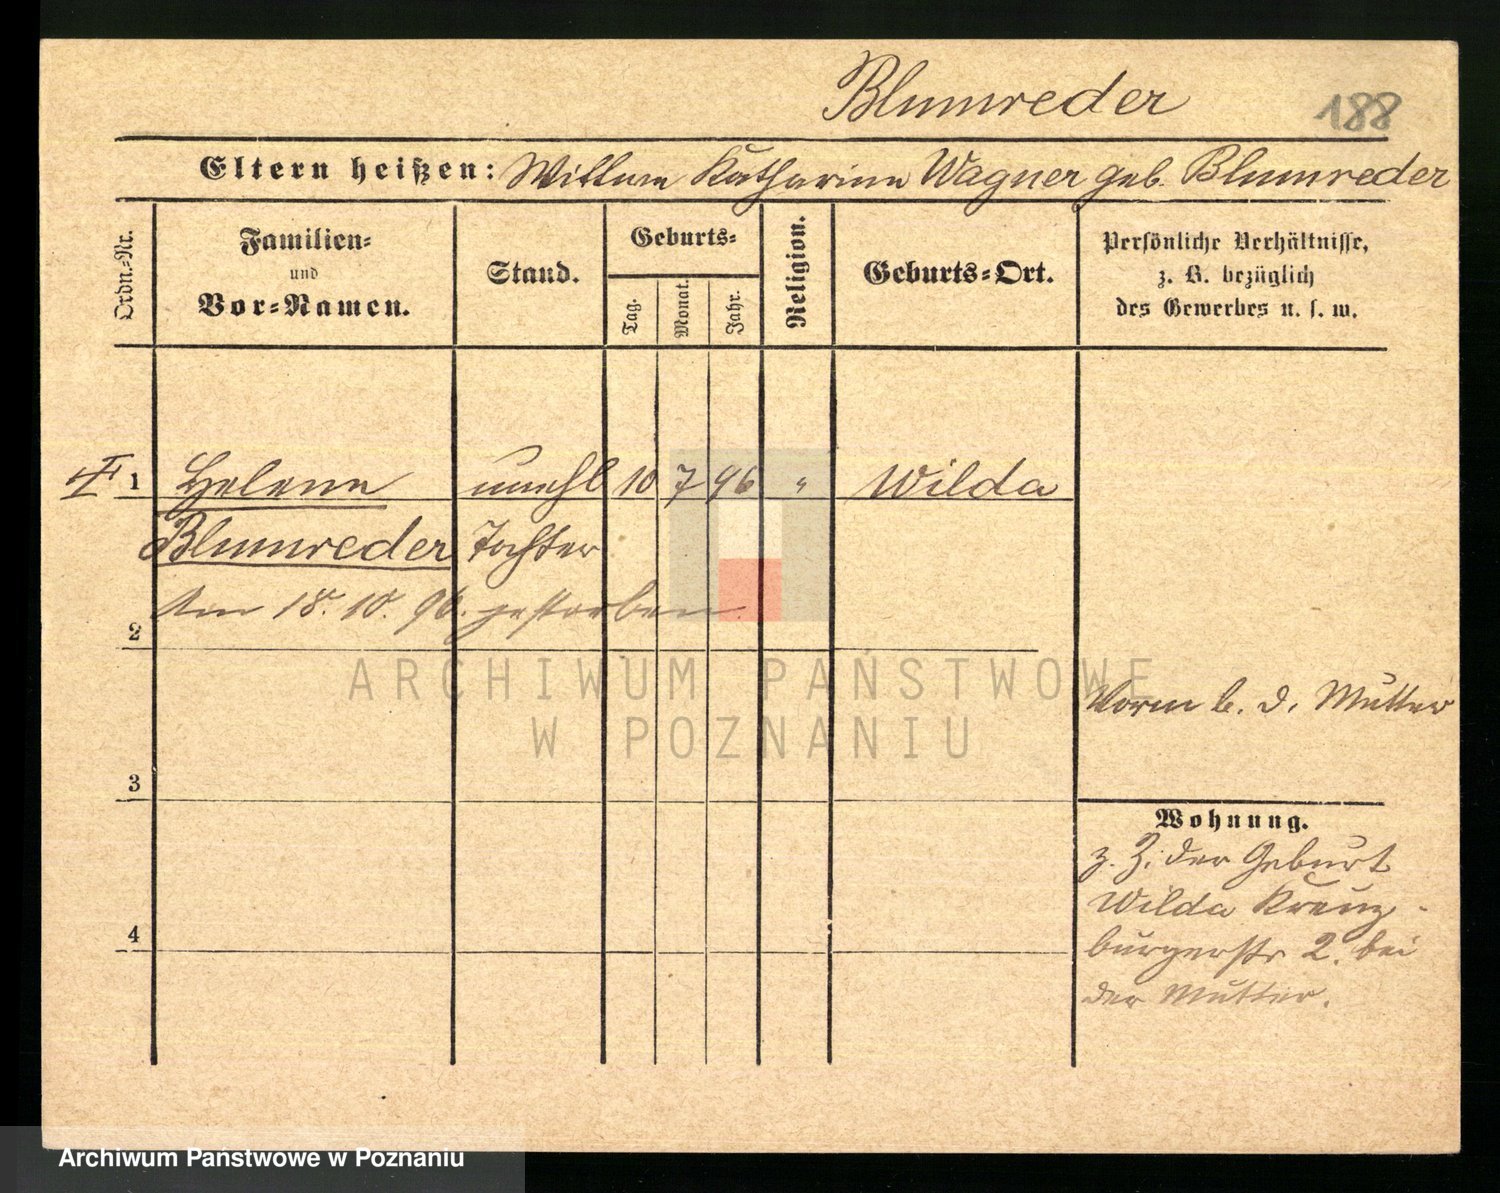 Blumreder 188
Eltern heißen: Wittwe Katharina Wagner geb. Blumreder
Ordn.-Nr.
Familien-
und
Vor-Namen.
Stand.
Geburts-
Tag.
Monat.
Jahr.
Religion.
Geburts-Ort.
Persönliche Verhältnisse,
z. B. bezüglich
des Gewerbes u. s. w.
1 Helene unehl 10 7 96 " Wilda
Blumreder Tochter
Am 18. 10. 96. gestorben.
2
ARCHIWUM PAŃSTWOWE
W POZNANIU
b. d. Mutter
3
Wohnung.
z. Z. der Geburt
Wilda Kreuz-
burgerstr 2. bei
der Mutter.
4
Archiwum Państwowe w Poznaniu